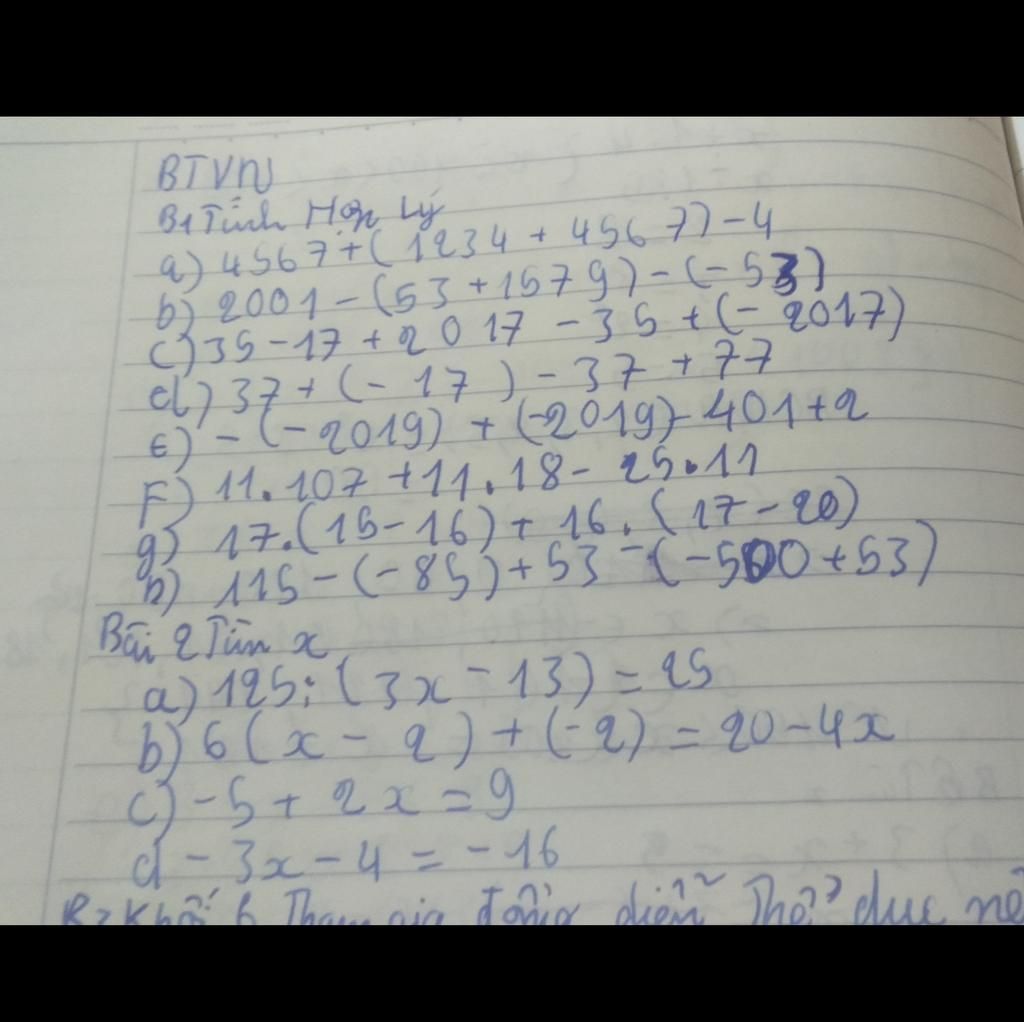 BTVN
B1 Tính Hợp Lý
a) 4567 + (1234 + 4567) - 4
b) 2001 - (53 + 1579) - (-53)
c) 35 - 17 + 2017 - 35 + (-2017)
d) 37 + (-17) - 37 + 77
e) - (-2019) + (-2019) - 401 + 2
F) 11.107 + 11.18 - 25.11
g) 17.(15 - 16) + 16.(17 - 20)
h) 115 - (-85) + 53 - (-500 + 53)
Bài 2 Tìm x
a) 125 : (3x - 13) = 25
b) 6(x - 2) + (-2) = 20 - 4x
c) -5 + 2x = 9
d - 3x - 4 = -16
B3 Khối 6 Tham gia đồng diễn Thể dục